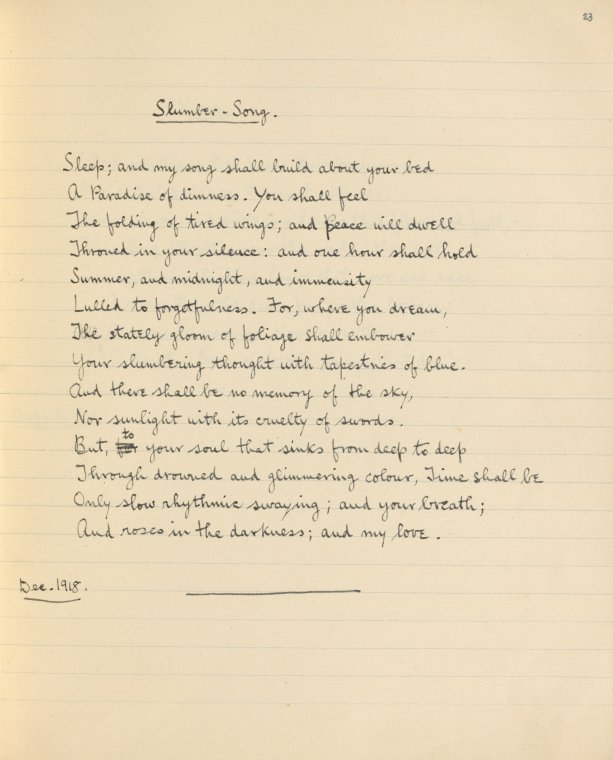 23
Slumber-Song.
Sleep; and my song shall build about your bed
A Paradise of dimness. You shall feel
The folding of tired wings; and peace will dwell
Throned in your silence: and one hour shall hold
Summer, and midnight, and immensity
Lulled to forgetfulness. For, where you dream,
The stately gloom of foliage shall embower
Your slumbering thought with tapestries of blue.
And there shall be no memory of the sky,
Nor sunlight with its cruelty of swords.
But, to your soul that sinks from deep to deep
Through drowned and glimmering colour, Time shall be
Only slow rhythmic swaying; and your breath;
And roses in the darkness; and my love.
Dec. 1918.